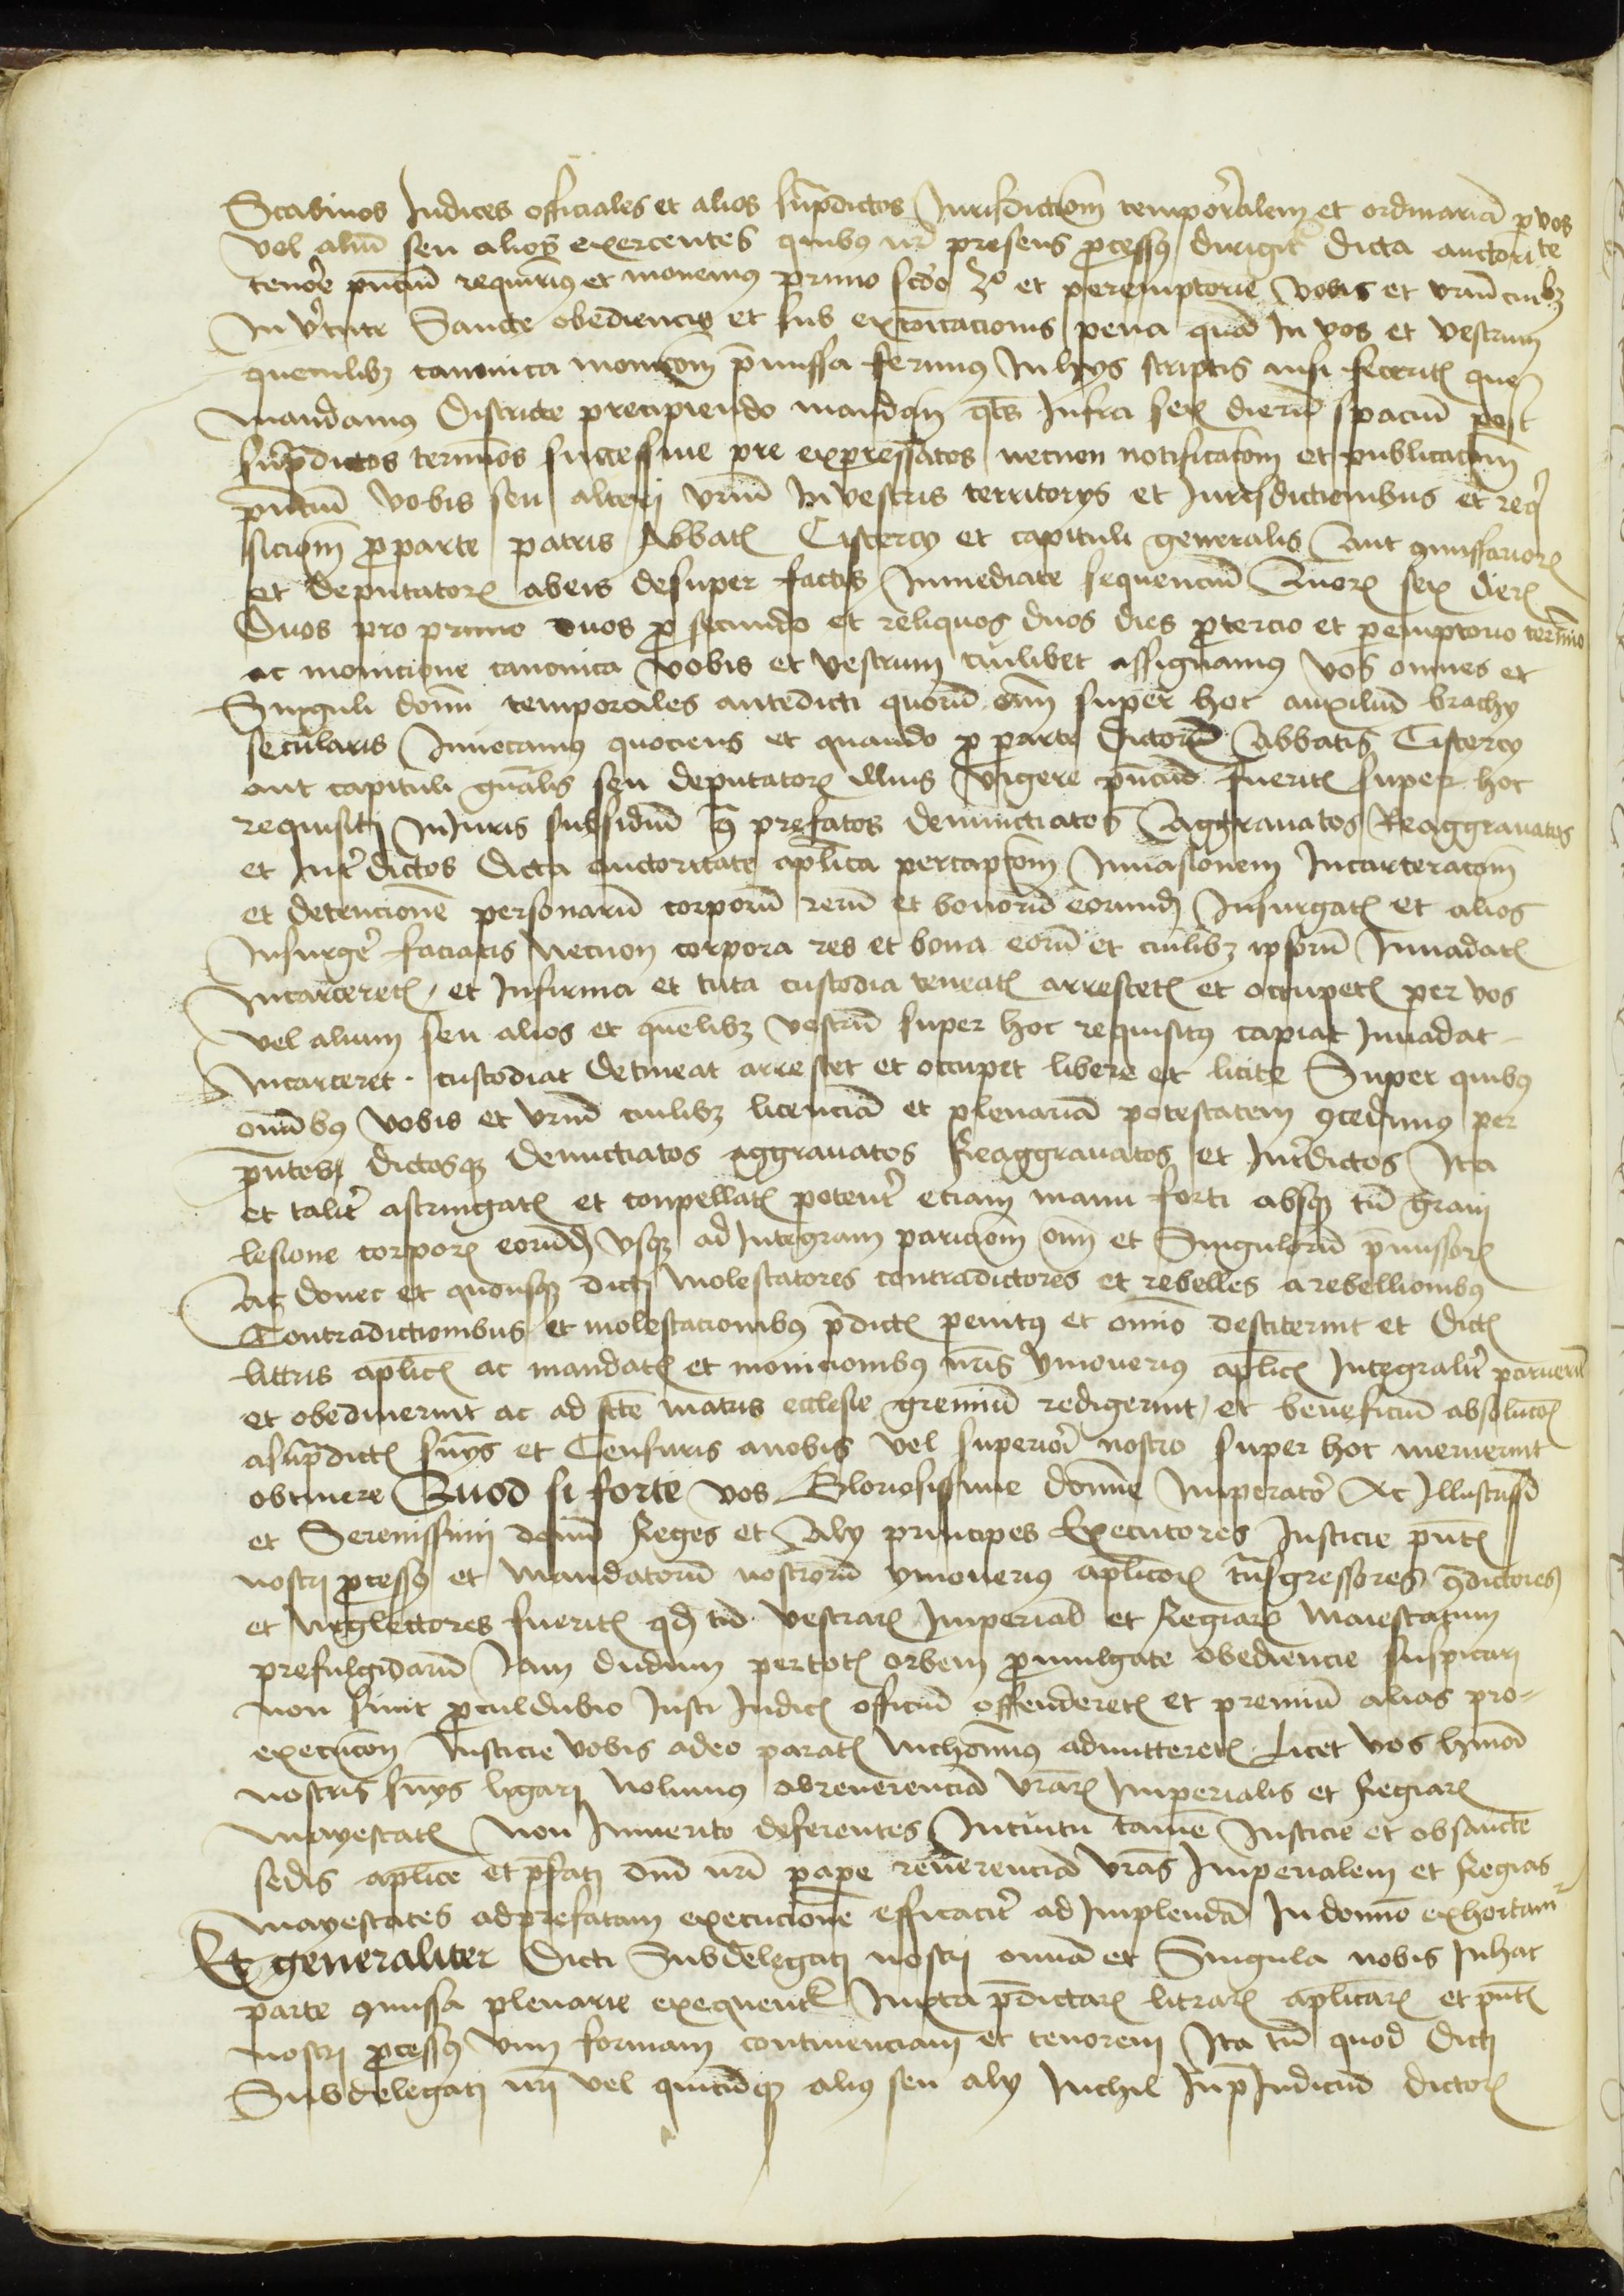 Scabinos Judices officiales et alios sup̄dictos Jurisdictiōm temporalem et ordinariā p vos
vel aliū seu alios exercentes quibꝰ nr̄ presens ꝓcessꝰ dirigit᷑ dicta auctorite
tenore pn̄ciū requirimꝰ et monemus primo scd̄o 3º et peremptorie vobis et vr̄m cuilibꝫ
In v̓tute Sancte obediencie et sub excōicacionis pena quā In vos et vestrum
quemlibꝫ canonica monic̄om p̄missa ferimus In hys scriptis nisi feceritꝭ que
mandamus Districte precipiendo mandam̄ qt̄s Infra sex dierū spaciū post
sup̄dictos terminos successiue pre expressatos necnon notificac̄om et publicac̄om
pn̄ciū vobis seu alteri vr̄m In vestris territorys et Jurisdictionibus et req̓
sic̄om ꝓ parte patris Abbatꝭ Cistercy et capituli generalis Aut ꝯmissarioꝝ
et deputatoꝝ ab eis desuper factis Inmediate sequenciū Quoꝝ sex dieꝝ
Duos pro primo duos ꝓ secundo et reliquos duos dies ꝓ tercio et ꝑemptorio termīo
ac monicione canonica vobis et vestrum cuilibet assignamus vos omnes et
Singuli domī temporales antedicti quorū om̄ super hoc auxiliū brachy
secularis Jnuocamus quociens et quando ꝓ parte dictorū Abbatis Cistercy
aut capituli gn̄alis seu deputatoꝝ illius vigore pn̄ciū fueritꝭ super hoc
requisiti In Juris subsidiū ꝯ prefatos denunctiatos Aggrauatos Reaggrauatos
et Int̓dictos dicta auctoritate ap̄lica per captōm Jnuasionem Incarcerac̄om
et detencionē personarū corporū rerū et bonorū eorundꝫ Insurgatꝭ et alios
Insurge̓ faciatis Necnon corpora res et bona eorū et cuilibꝫ ipsorū Jnuadatꝭ
Incarceretꝭ et In firma et tuta custodia teneatꝭ arrestetꝭ et occupetꝭ per vos
vel alium seu alios et quēlibꝫ vestrū super hoc requisitꝰ capiat Jnuadat
Incarceret custodiat detineat arrestet et occupet libere et licite Super quibꝰ
om̄ibꝰ vobis et vr̄m cuilibꝫ licenciā et plenariā potestatem ꝯcedimus per
pn̄tes dictosqꝫ denunctiatos aggrauatos Reaggrauatos et Int̓dictos Ita
et talit̓ astringatꝭ et conpellatꝭ potent̓ eciam manu forti absqꝫ tn̄ graui
lesione corpoꝝ eorundꝫ vsqꝫ ad Integram paric̄om om̄ et Singulorū p̄missoꝝ
Ac donec et quousqꝫ dicti Molestatores contradictores et rebelles a rebellionibꝰ
Contradictionibus et molestacionibꝰ p̄dictꝭ penitꝰ et om̄io destiterint et dictꝭ
littris ap̄licꝭ ac mandatꝭ et monicionibꝰ nr̄is ymouerius ap̄licꝭ Integralit̓ paruerit
et obediuerint ac ad scte matris ecclesie gremiū redigerint et beneficiū absolucōꝭ
a sup̄dictꝭ sn̄ys et Censuris a nobis vel superiori nostro super hoc meruerint
obtinere Quod si forte vos Gloriosissime domine Imperator Ac Illustrissī
et Serenissimi domī Reges et Aly principes Executores Justicie pn̄tꝭ
nostri ꝓcessꝰ et Mandatorū nostrorū ymouerius ap̄licoꝝ tn̄sgressores ꝯdictores
et neglectores fueritꝭ qd̄ tn̄ vestraꝝ Imperial̄ et Regiaꝝ Maiestatum
prefulgidarū Jam dudum per totꝭ orbem ꝓmulgate obediencie suspicari
non sinit ꝓculdubio Justi Judicꝭ officiū offenderetꝭ et premiū alias pro-
execucōn Justicie vobis adeo paratꝭ Nichōinus admitteretꝭ Licet vos hmōi
nostris sn̄ys ligari Nolimus ob reuerenciā vr̄aꝝ Imperialis et Regiaꝝ
Mayestatꝭ Non Inmerito deferentes Intuitu tamē Justicie et ob sancte
sedis ap̄lice et p̄fati dn̄i nr̄i pape reuerenciā vr̄as Imperialem et Regias
Mayestates ad prefatam execucionē efficacit̓ ad Implendā In domino exhortam᷑
Et generaliter Dicti Subdelegati nostri omnia et Singula nobis In hac
parte ꝯmissa plenarie exequent᷑ Juxta p̄dictaꝝ litraꝝ ap̄licaꝝ et pn̄tꝭ
nostri ꝓcessꝰ vim formam continenciam et tenorem Ita tn̄ quod dicti
Subdelegati nr̄i vel quicūqꝫ aliꝰ seu aly Nichil In p̄Judiciū dictoꝝ